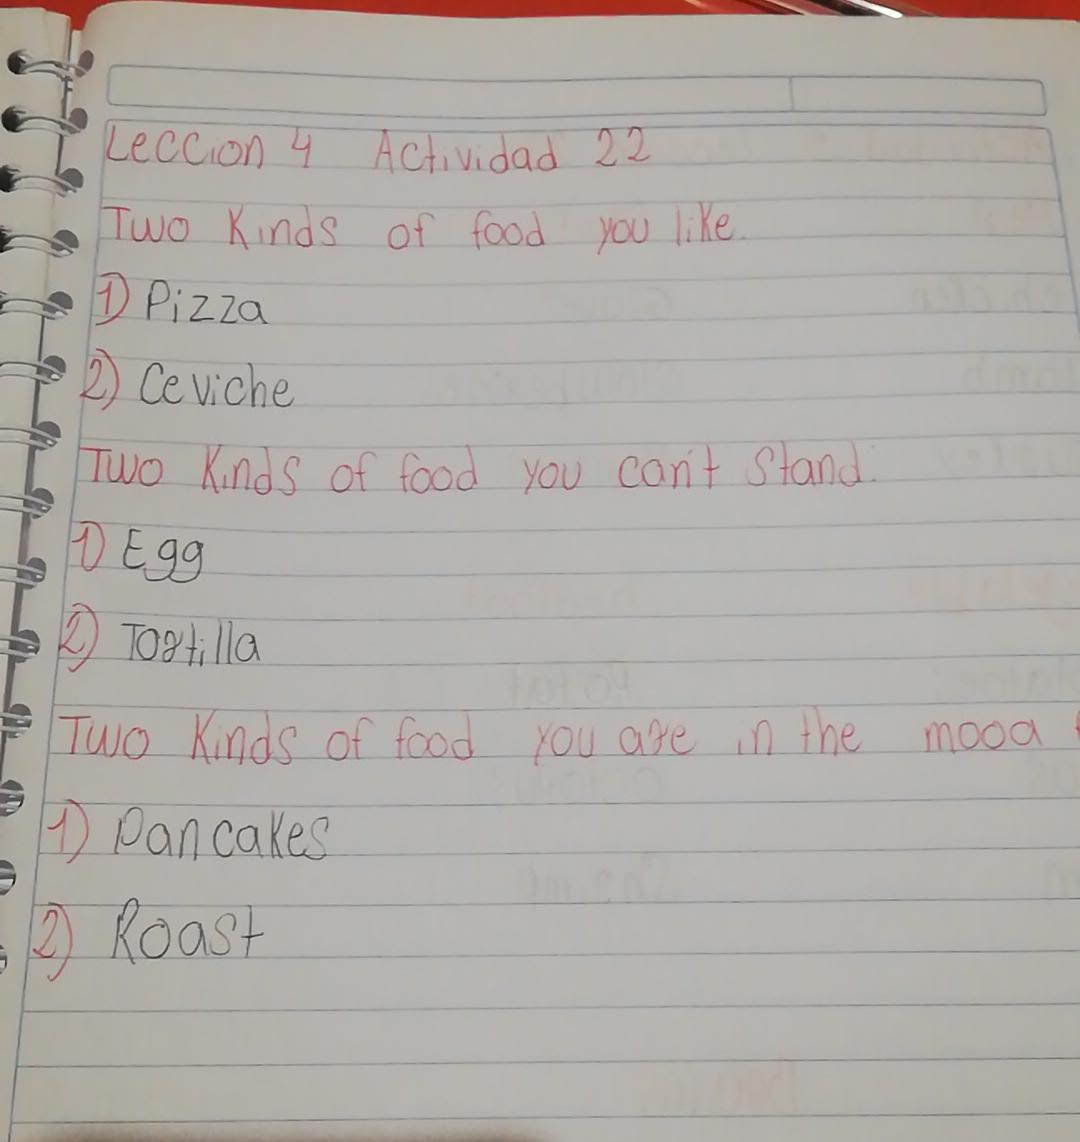 Leccion 4 Actividad 22
Two Kinds of food you like.
1) Pizza
2) Ceviche
Two Kinds of food you can't Stand.
1) Egg
2) Tortilla
Two Kinds of food you are in the mood
1) Pancakes
2) Roast